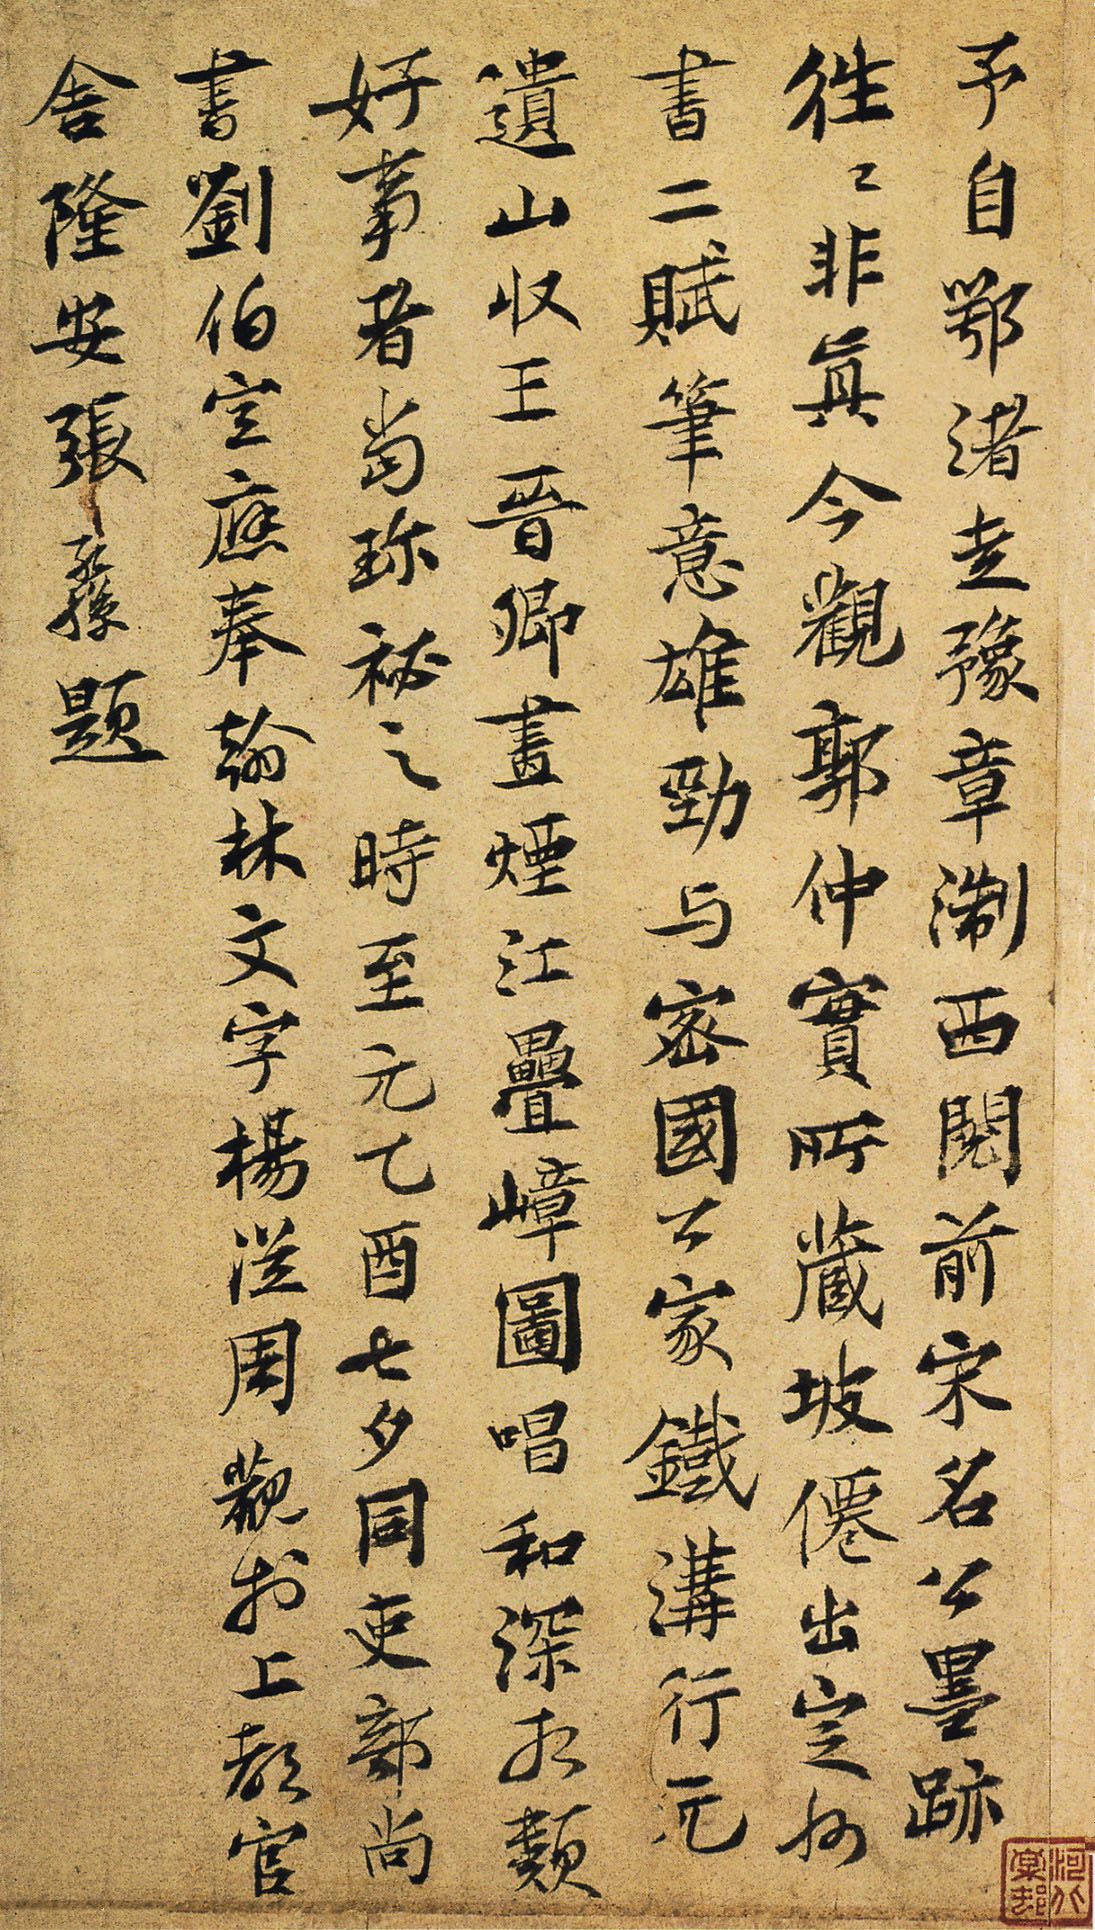 予自鄂渚走豫章淛西閱前宋名公墨跡
往〻非真今觀郭仲實所藏坡僊出定州
書二賦筆意雄勁与密國公家鐵溝行元
遺山收王晉卿畫煙江疊嶂圖唱和深相類
好事者當珎祕之時至元乙酉七夕同吏部尚
書劉伯宣應奉翰林文字楊從周觀於上都官
舍隆安張孔孫題